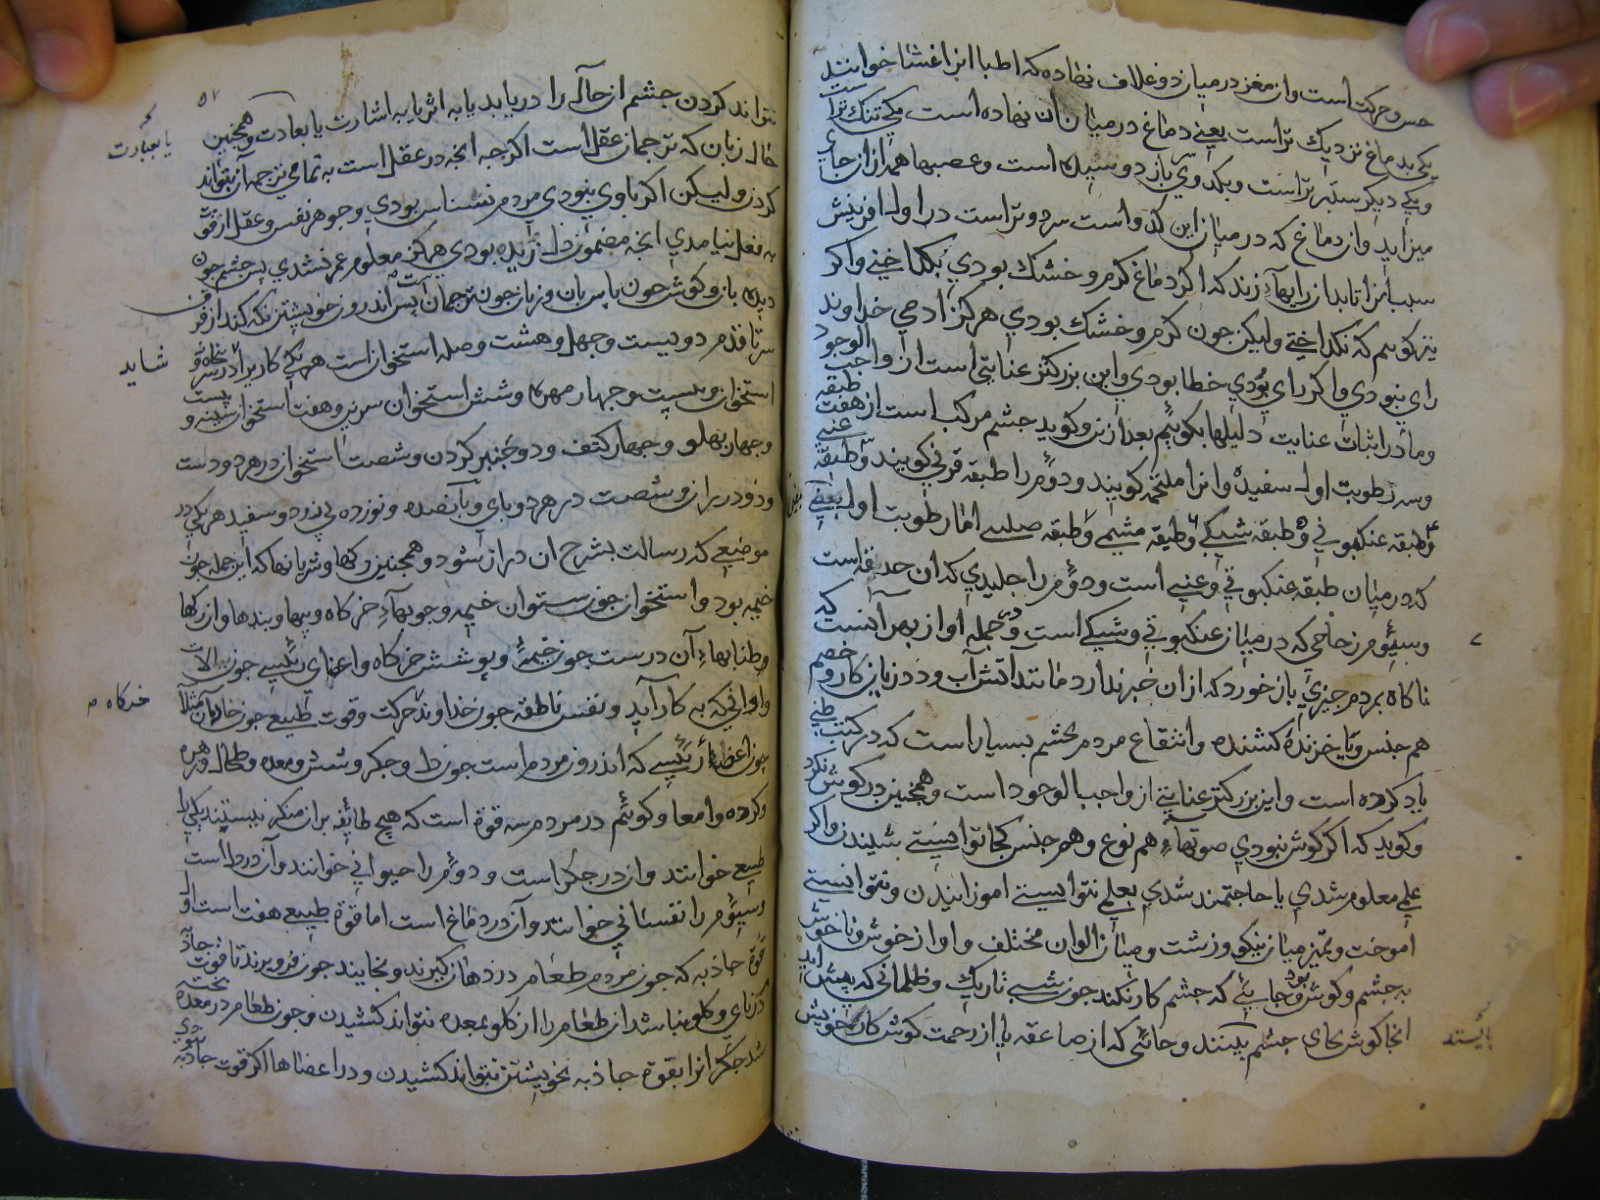 حس و حرکت است وان مغز در میان دو غلاف نهاده که اطبا انرا غشا خوانند
یکی بدماغ نزدیک تر است یعنی دماغ در میان ان نهاده است یکی تنک تر است
ویکی دیکر ستبر تر است و بکدوی باز دوسیده است و عصبها همه از ان جای
میزاید وان دماغ که در میان این کدو است سرد و تر است در اول افرینش
سبب انرا نابدانرا بهاء زند که اکر دماغ کرم و خشک بودی بکداختی واکر
نیز کویم که نکداختی ولیکن چون کرم و خشک بودی هرکز ادمی خداوند
رای نبودی واکر رای بودی خطا بودی واین بزرکتر عنایتی است از واجب الوجود
وما در اثبات عنایت دلیلها بکوییم بعد ازین وکوید چشم مرکب است از هفت طبقه
وسه رطوبت اول سفیده وانرا ملتحمه کویند ودوم را طبقه قرنی کویند و طبقه عنبی
و طبقه عنکبوتی و طبقه شبکی و طبقه مشیمی و طبقه صلبی اما رطوبت اول بیضی
که در میان طبقه عنکبوتی و عنبی است ودوم را جلیدی که ان حدقه است
وسیوم زجاجی که در میان عنکبوتی وشبکی است و جمله او از بهر آنست که
ناکاه بمردم چیزی باز خورد که ازان خبر ندارد مانند آتش آب ودد زیان کار وخصم
هم جنس ویا خزنده کشنده وانتفاع مردم بچشم بسیار است که در کتب طبی
یاد کرده است واین بزرکتر عنایتی از واجب الوجود است وهمچنین در کوش نکرد
وکوید که اکر کوش نبودی صوتهاء هم نوع وهم جنس کجا توانستی شنیدن واکر
علمی معلوم شدی یا حاجتمند شدی بعلمی نتوانستی اموزانیدن ونتوانستی
اموخت وتمیز میان نیکو وزشت ومیان الوان مختلف واواز خوش وناخوش
به چشم وکوش بود وجایی که چشم کار نکند چون شب تاریک وظلماتی که پیش اید
انجا کوش بجای چشم بیستد وجائی که از صاعقه یا از زحمت کوش کار خویش
بایستد
نتواند کردن چشم ازحاله را دریابد یا به اثر یا به اشارت یا بعادت وهمچنین
یا بعبارت
حال زبان که ترجمان عقل است اکرچه انچه در عقل است به تمامی ترجمه آن نتواند
کردن ولیکن اکر با وی نبودی مردم نشناس بودی وجوهر نفس وعقل از قوة
به فعل نیامدی انچه مضمون دل زنده بودی هرکز معلوم عمر نشدی پس چشم چون
دیده بان وکوش چون پاس بان وزبان چون ترجمان است پس اندرون خویشتن نکه کند از فرق
سر تا قدم دویست وچهل وهشت وصله استخوان است هریکی کاریرا در سر پنجاه و
شاید
استخوان وبیست وچهار مهره وشش استخوان سرین وهفت استخوان سینه و
وچهار پهلو وچهار کتف ودو چنبر کردن وشصت استخوان در هر دو دست
ودو در ران وشصت در هر دو پای وپانصد ونوزده پی زرد وسفید هریکی در
موضعی که رسالت بشرح ان دراز شود وهمچنین رکها وشریانها که این جمله چون
خیمه بود واستخوان چون ستون خیمه وچوبهاء خرکاه وپیها وبندها ورکها
وطنابهاء آن درست چون خیمه وپوشش خرکاه واعضای رئیسی چون آلات
واوانی که به کار آید ونفس ناطقه چون خداوند حرکت وقوت طبیعی چون خادمان مثلا
خرکاه
چون اعضاء رئیسی که اندرون مردم است چون دل وجکر وشش ومعده وطحال وزهره
وکرده وامعا وکوئیم در مردم سه قوة است که هیچ طائفه بران منکر نیستند یکی را
طبیعی خوانند وان در جکر است ودوم را حیوانی خوانند وآن در دل است
وسیوم را نفسانی خوانند وآن در دماغ است اما قوة طبیعی هفت است اول
قوة جاذبه که چون مردم طعام در دهان کیرند وبخایند چون فرو برند تا قوت جاذبه
در نای وکلو نباشد ان طعام را از کلو بمعده نتواند کشیدن وچون طعام در معده پخته
شد جکر انرا بقوة جاذبه بخویشتن نتواند کشیدن ودر اعضاها اکر قوت جاذبه نبودی